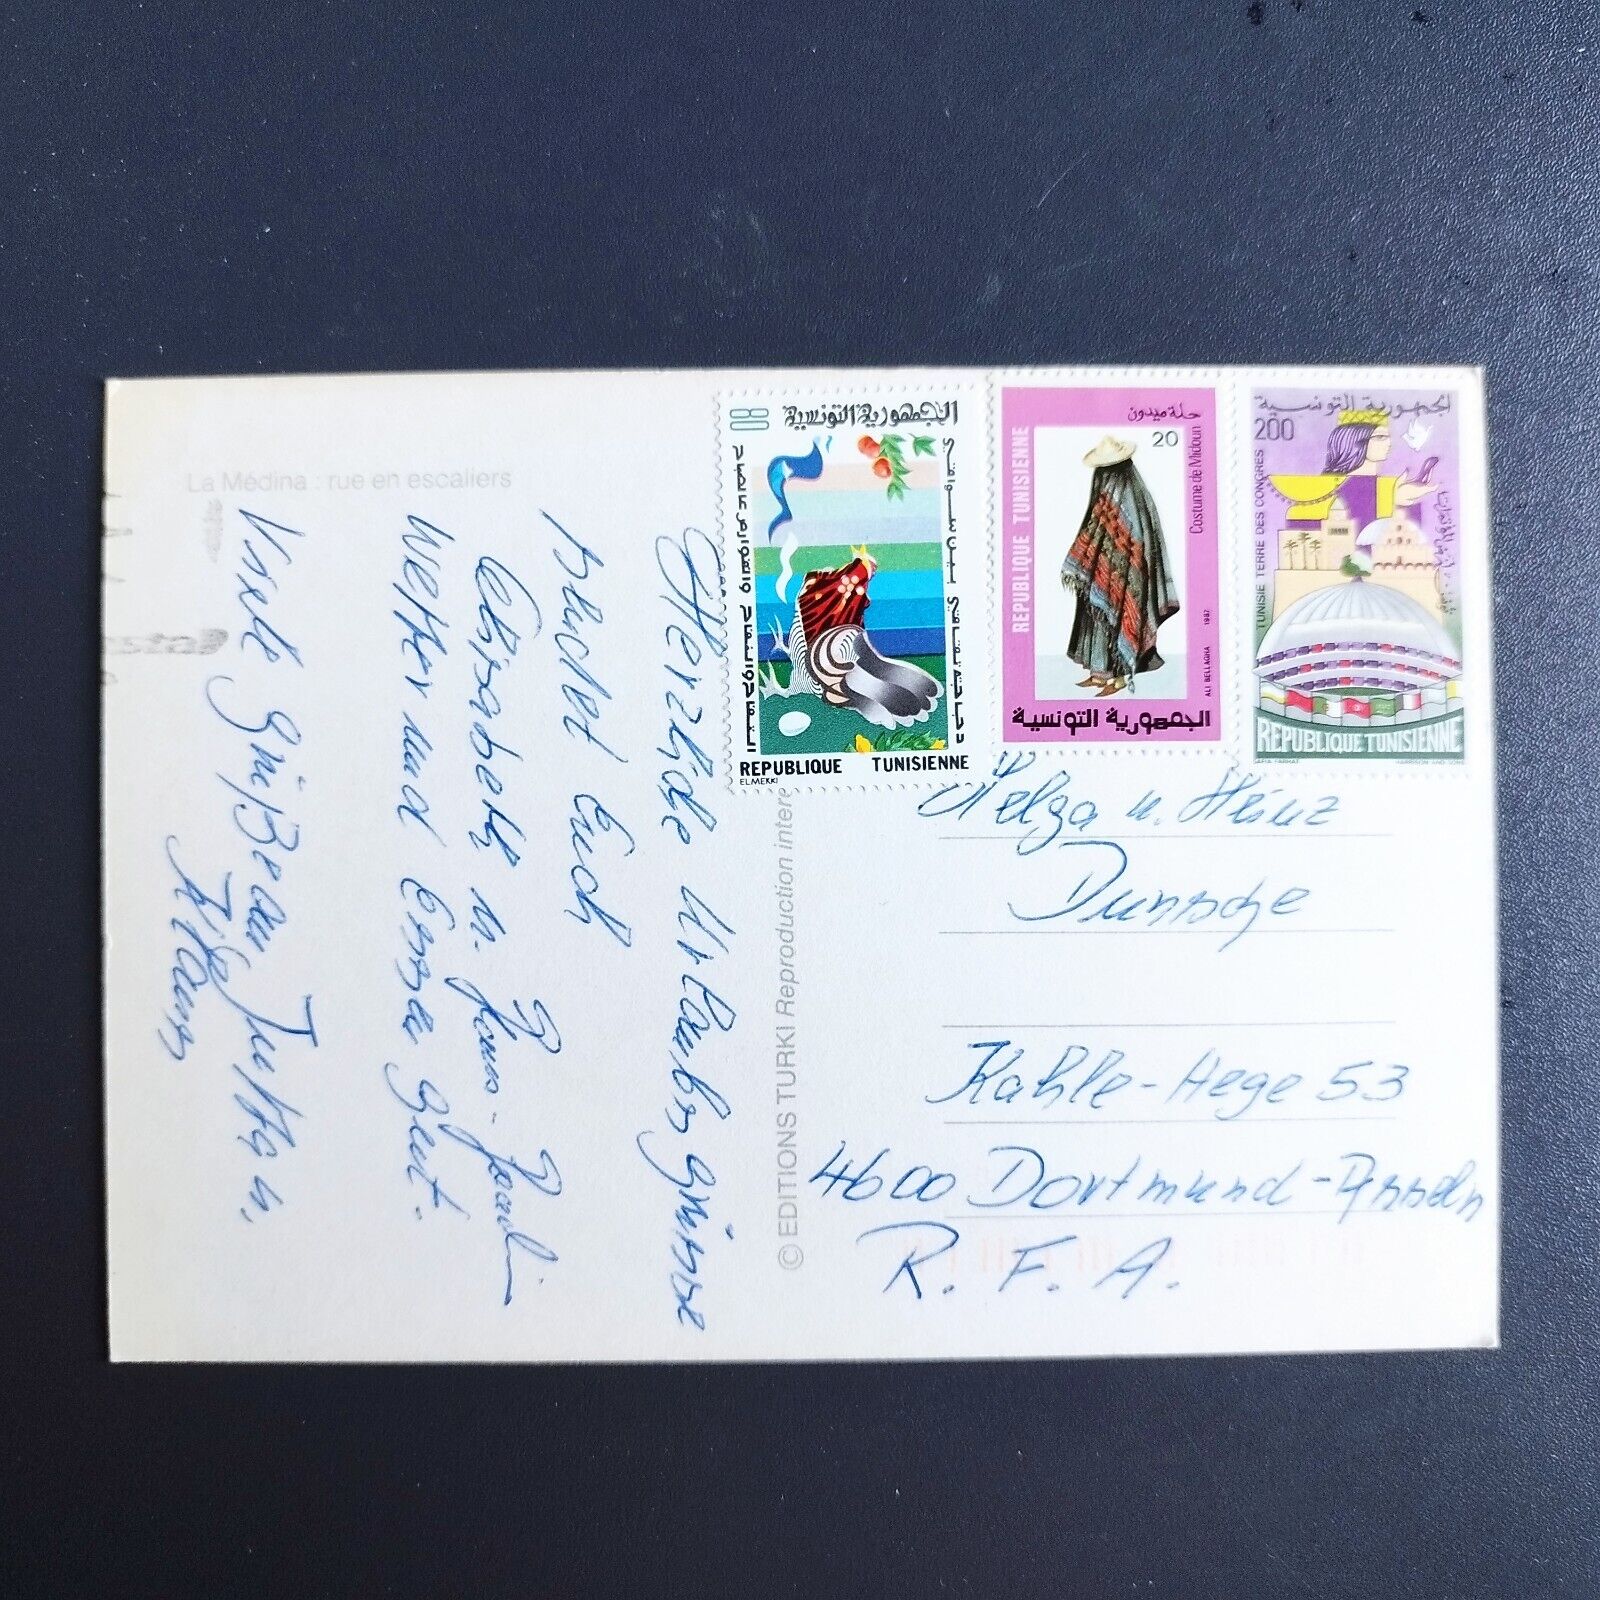 La Médina : rue en escaliers
Herzliche Urlaubsgrüsse
sendet Euch
Elisabeth u.
Wetter und Essen gut.
Viele Grüße an Jutta u.
Klaus
© EDITIONS TURKI Reproduction inter
الجمهورية التونسية
80
REPUBLIQUE TUNISIENNE
ELMEKKI
حلة ميدون
20
Costume de Midoun
REPUBLIQUE TUNISIENNE
ALI BELLAGHA 1987
الجمهورية التونسية
الجمهورية التونسية
200
TUNISIE TERRE DES CONGRES
REPUBLIQUE TUNISIENNE
SAFIA FARHAT HARRISON AND SONS
Helga u. Heinz
Kahle-Hege 53
4600 Dortmund-
R. F. A.